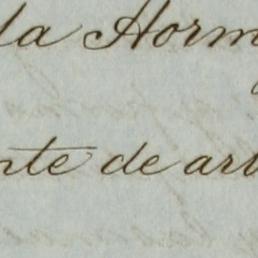 la Horm
nte de art